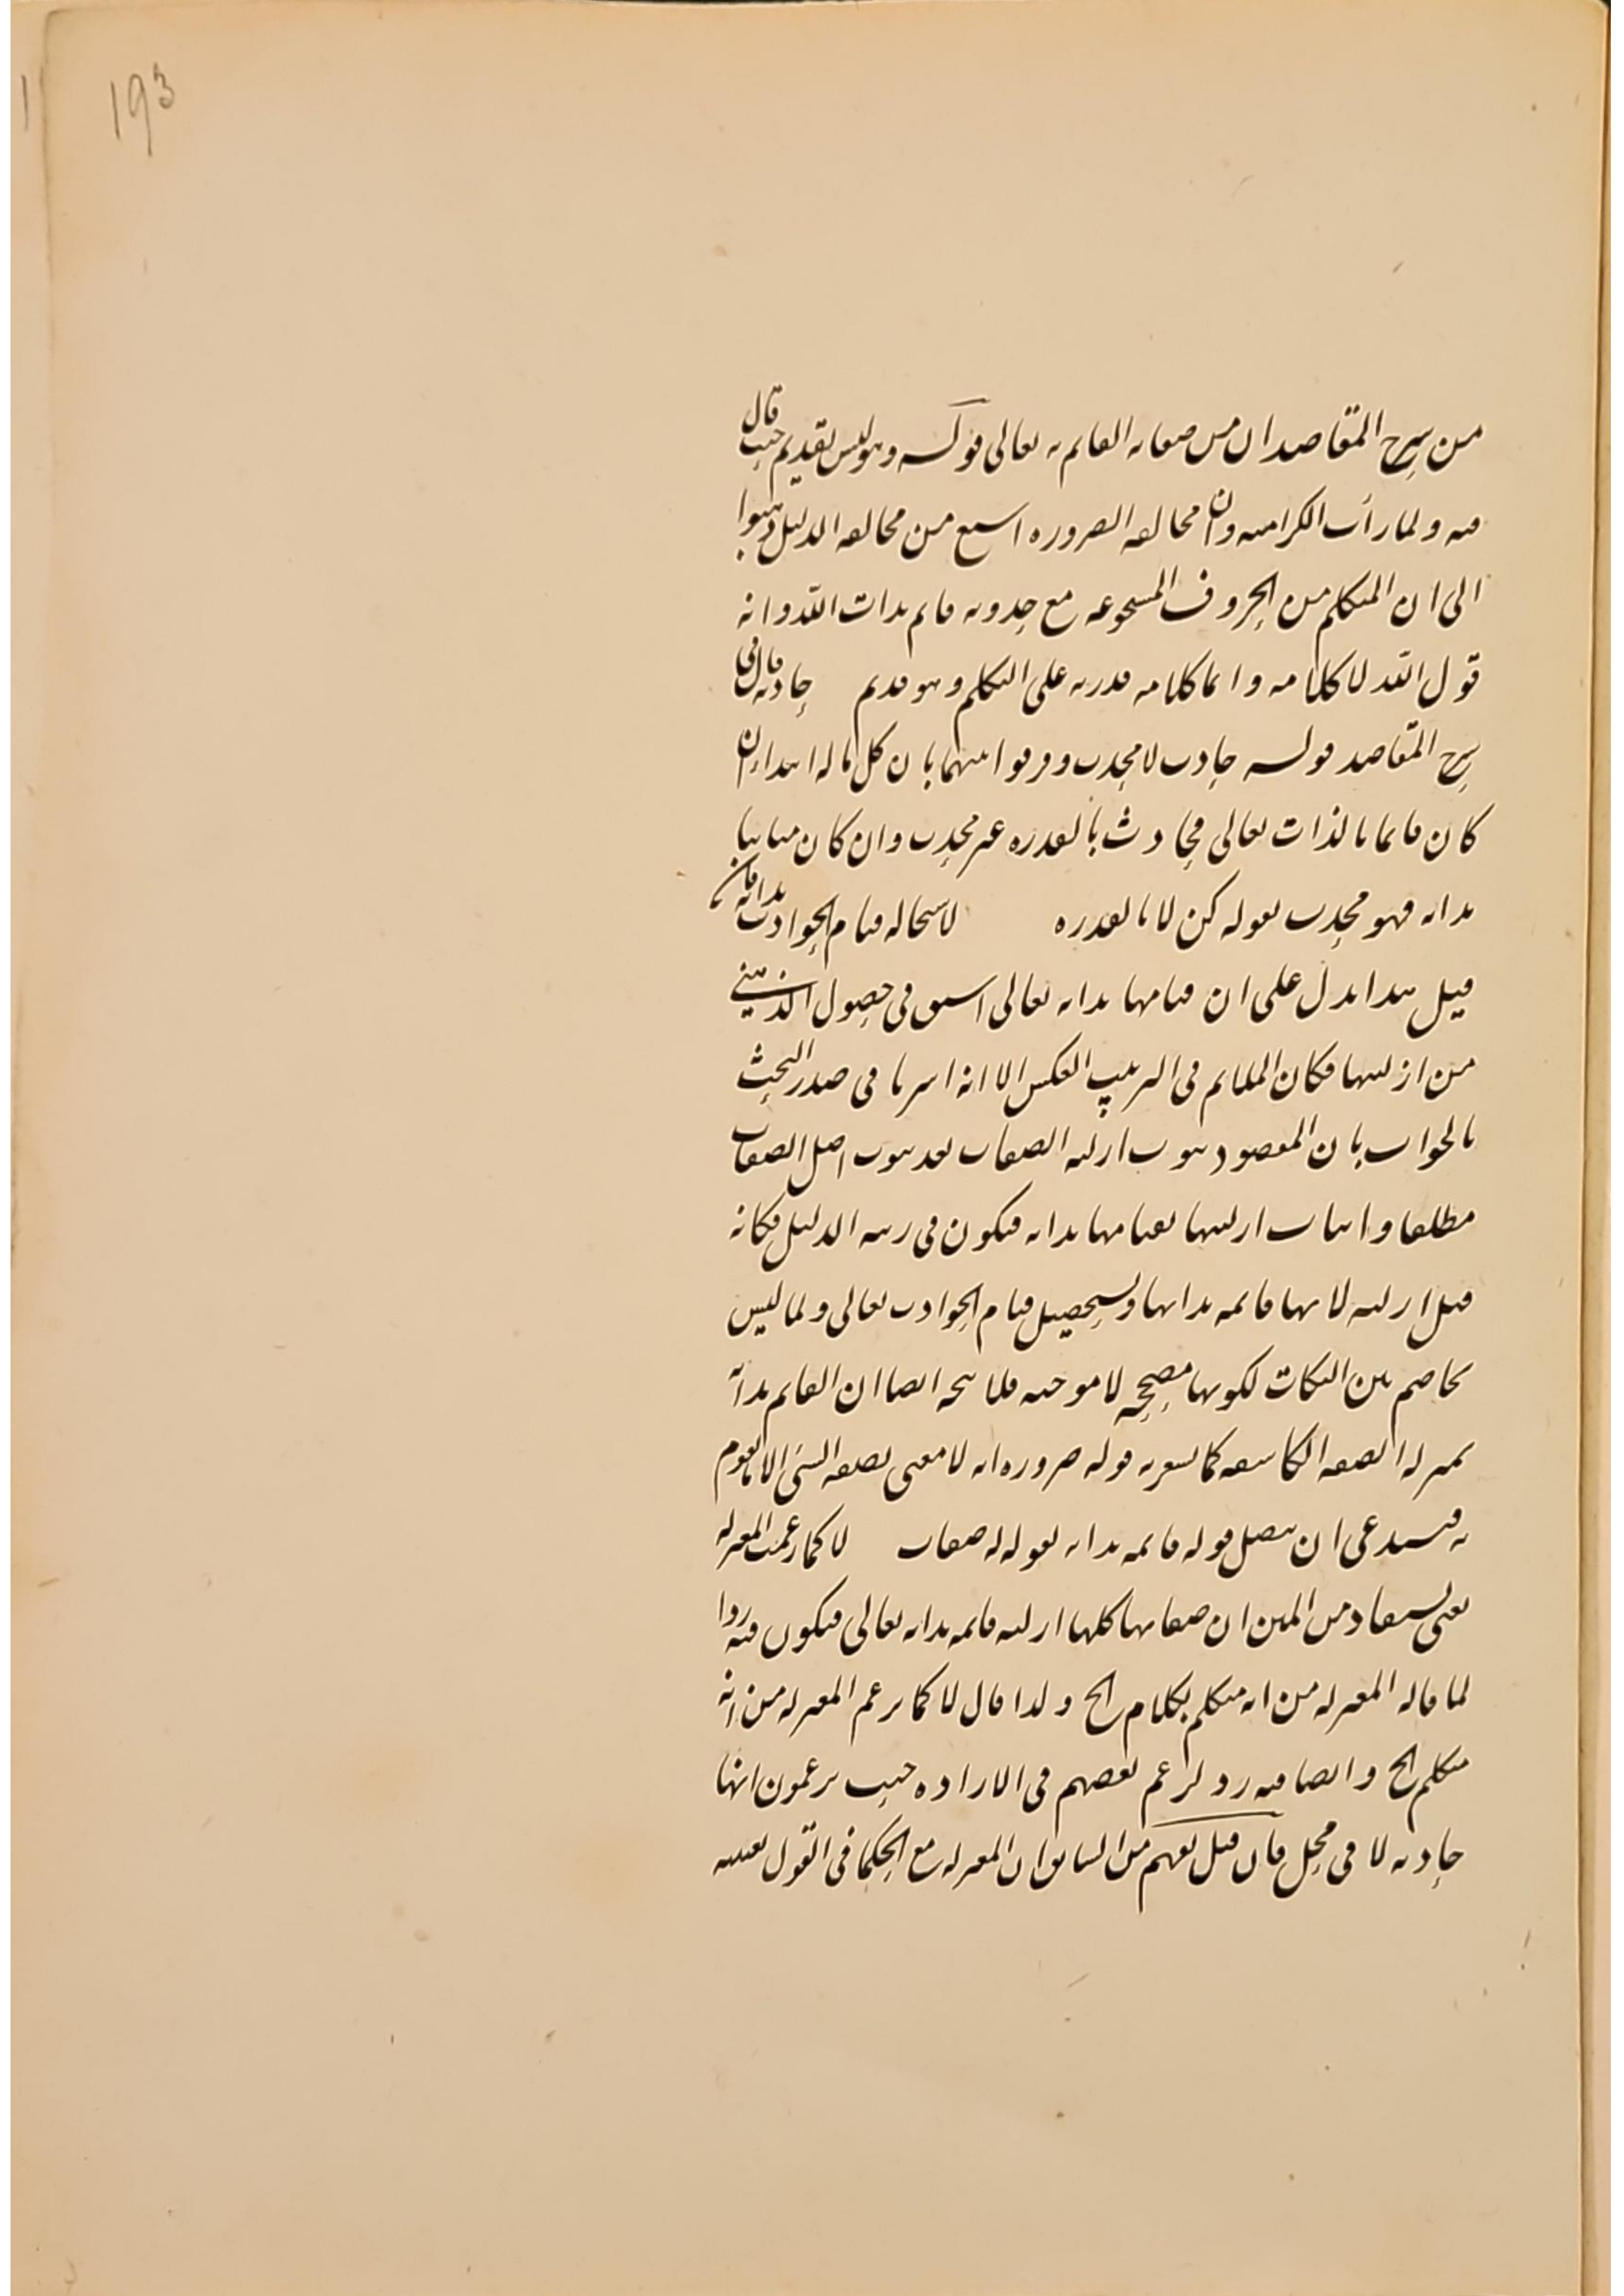 193
من شرح المقاصد ان من صفاته القائم به تعالى قوله وهو ليس بقديم حيث قال
فيه ولما رأت الكرامية وان مخالفة الضرورة اشنع من مخالفة الدليل ذهبوا
الى ان المتكلم من الحروف المسموعة مع حدوثه قائم بذات الله وانه
قول الله لا كلامه وانما كلامه قدرته على التكلم وهو قديم حادثة قال في
شرح المقاصد قوله حادث لا محدث وفرقوا بينهما بان كل ما له ابتداء ان
كان قائما بالذات تعالى فحادث بالقدرة غير محدث وان كان مباينا
بذاته فهو محدث بقوله كن لا بالقدرة لاستحالة قيام الحوادث بذاته فان
قيل هذا يدل على ان قيامها بذاته تعالى اسبق في حصول الذهني
من ازليتها فكان الملائم في الترتيب العكس الا انه اشرنا في صدر البحث
بالجواب بان المقصود ثبوت ازلية الصفات بعد ثبوت اصل الصفات
مطلقا واثبات ازليتها بقيامها بذاته فيكون في رتبة الدليل فكانه
قيل ازلية لانها قائمة بذاتها ويستحيل قيام الحوادث تعالى ولما ليس
تخاصم بين النكات لكونها مصححة لا موجبة فلا يتجه ايضا ان القائم بذاته
بمنزلة الصفة الكاشفة كما يشعر به قوله ضرورة انه لا معنى لصفة الشئ الا ما يقوم
به فيستدعي ان يتصل قوله قائمة بذاته بقوله له صفات لا كما زعمت المعتزلة
يعني يستفاد من المتن ان صفاتها كلها ازلية قائمة بذاته تعالى فيكون فيه ردا
لما قاله المعتزلة من انه متكلم بكلام الخ ولذا قال لا كما يزعم المعتزلة من انه
متكلم الخ وايضا فيه رد لزعم بعضهم في الارادة حيث يزعمون انها
حادثة لا في محل فان قيل يفهم من السابق ان المعتزلة مع الحكما في القول بعينية